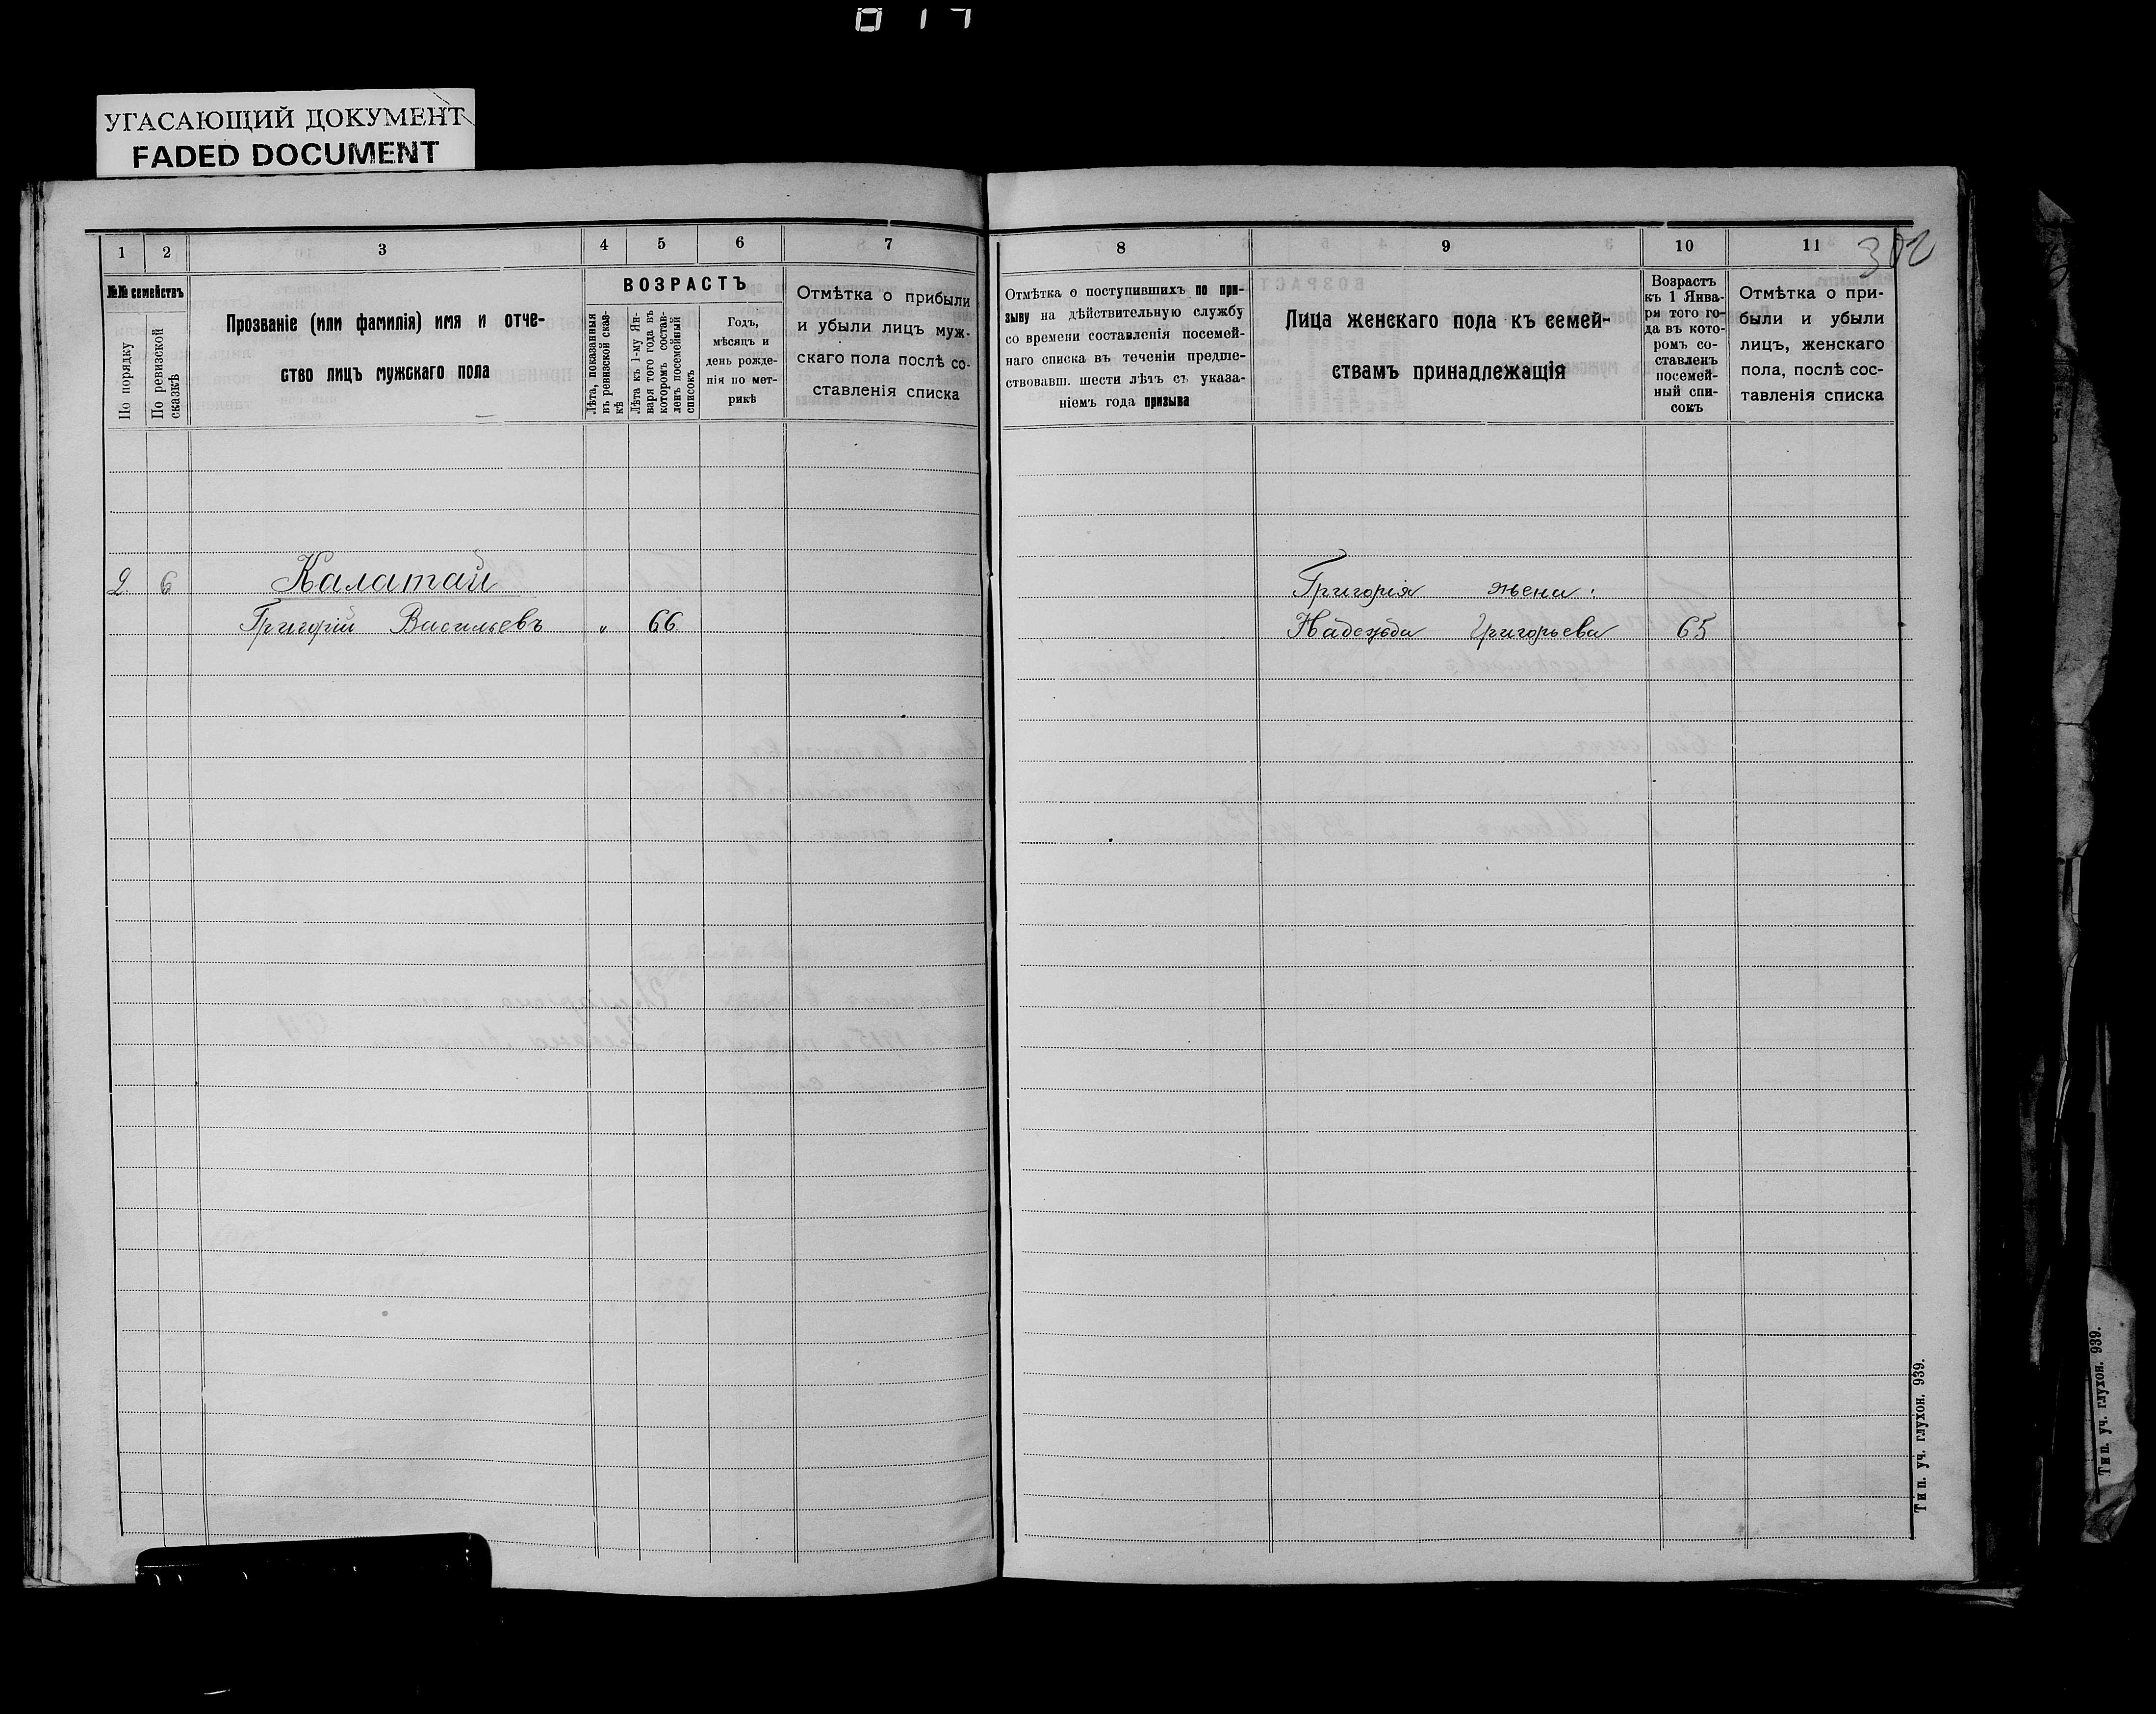 УГАСАЮЩИЙ ДОКУМЕНТ
FADED DOCUMENT
1 2 3 4 5 6 7
№№ семействъ
По порядку
По ревизской
сказкѣ
Прозваніе (или фамилія) имя и отче-
ство лицъ мужскаго пола
ВОЗРАСТЪ
Лѣта, показанныя
въ ревизской сказ-
кѣ
Лѣта къ 1-му Ян-
варя того года въ
которомъ состав-
ленъ посемейный
списокъ
Годъ,
мѣсяцъ и
день рожде-
нія по мет-
рикѣ
Отмѣтка о прибыли
и убыли лицъ муж-
скаго пола послѣ со-
ставленія списка
2 6 Калатай
Григорій Васильевъ " 66
8 9 10 11
302
Отмѣтка о поступившихъ по при-
зыву на дѣйствительную службу
со времени составленія посемей-
наго списка въ теченіи предше-
ствовавш. шести лѣтъ съ указа-
ніемъ года призыва
Лица женскаго пола къ семей-
ствамъ принадлежащія
Возрастъ
къ 1 Янва-
ря того го-
да въ кото-
ромъ со-
ставленъ
посемей-
ный спи-
сокъ
Отмѣтка о при-
были и убыли
лицъ, женскаго
пола, послѣ сос-
тавленія списка
Григорія жена:
Надежда Григорьева 65
Тип. уч. глухон. 939.
Тип. уч. глухон. 939.